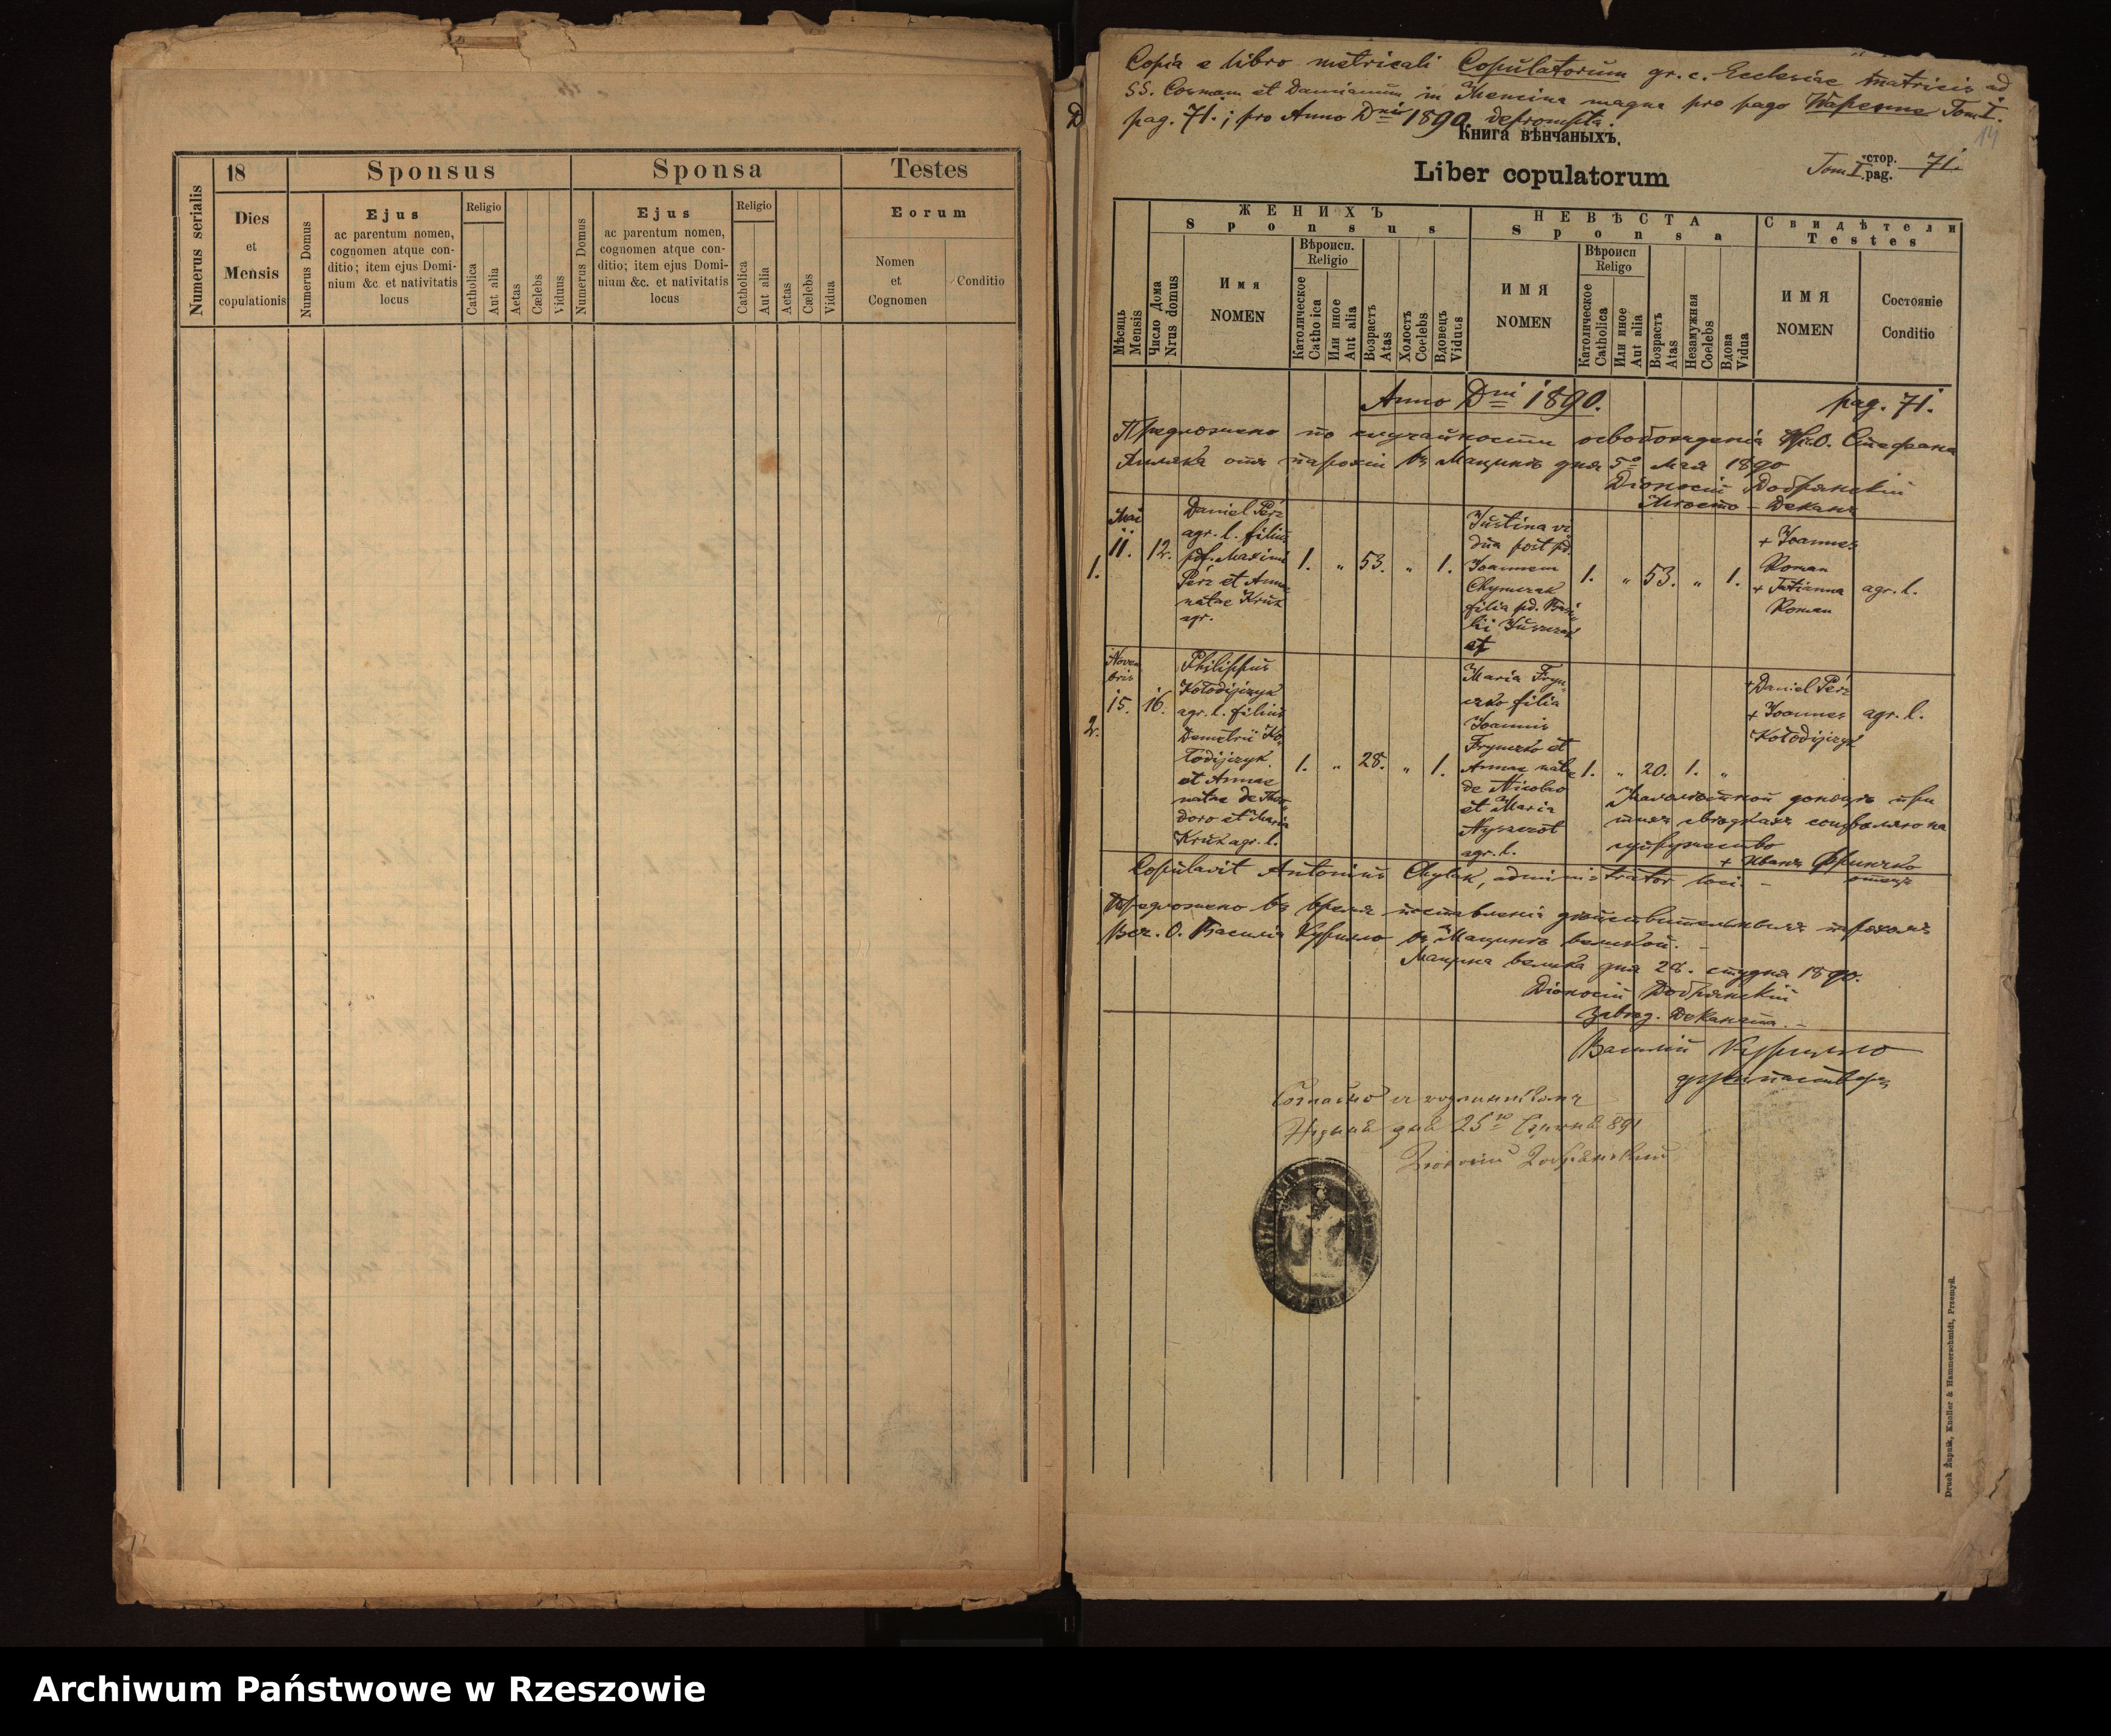 18
Sponsus
Sponsa
Testes
Numerus serialis
Dies
et
Mensis
copulationis
Numerus Domus
Ejus
ac parentum nomen,
cognomen atque con-
ditio; item ejus Domi-
nium &c. et nativitatis
locus
Religio
Catholica
Aut alia
Aetas
Cælebs
Viduus
Numerus Domus
Ejus
ac parentum nomen,
cognomen atque con-
ditio; item ejus Domi-
nium &c. et nativitatis
locus
Religio
Catholica
Aut alia
Aetas
Cælebs
Vidua
Eorum
Nomen
et
Cognomen
Conditio
Copia e libro metricali Copulatorum gr. c. Ecclesiae matricis ad
SS. Cosmam et Damianum in Mencina magna pro pago Wapenne Tom I.
pag. 71.; pro Anno Dni 1890 deprompta.
14
Книга вѣнчаныхъ.
Liber copulatorum
Tom I
стор.
pag.
71.
ЖЕНИХЪ
Sponsus
НЕВѢСТА
Sponsa
Свидѣтели
Testes
Мѣсяць
Mensis
Число Дома
Nrus domus
Имя
NOMEN
Вѣроисп.
Religio
Католическое
Catholica
Или иное
Aut alia
Возрастъ
Atas
Холостъ
Coelebs
Вдовецъ
Viduus
ИМЯ
NOMEN
Вѣроисп
Religo
Католическое
Catholica
Или иное
Aut alia
Возрастъ
Atas
Незамужная
Coelebs
Вдова
Vidua
ИМЯ
NOMEN
Состоянie
Conditio
Anno Dni 1890.
pag. 71.
Предложено по случайности освобожденія Вч.О. Стефана
отъ парохіи въ Мацинѣ дня 5º Мая 1890
Діонисій Добрянскій
Деканъ
1.
Mai
11.
12.
Daniel Perz
agr. l. filius
pd. Maximi
Perz et Annae
natae Kruk
agr.
1. „ 53. „ 1.
Justina vi
dua post pd.
Joannem
Chymczak
filia pd. Basi
lii
et
1. „ 53. „ 1.
+ Joannes
Roman
+ Tatianna
Roman
agr. l.
2.
Novem
bris
15.
16.
Philippus
Kołodijczyk
agr. l. filius
Demetrii Ko-
łodijczyk
et Annae
natae de Theo
doro et Maria
Kruk agr. l.
1. „ 28. „ 1.
Maria Fryn
czko filia
Joannis
Frynczko et
Annae natae
de Nicolao
et Maria
agr. l.
1. „ 20. 1. „
+ Daniel Perz
+ Joannes
Kołodijczyk
agr. l.
Малолѣтной доньцѣ при
тыхъ свѣдкахъ соизволяю на
супружество
+ Иванъ Фринчко
отецъ
Copulavit Antonius Chylak, administrator loci. –
Предложено въ время поставленія дѣйствительнымъ пароxомъ
Всч. О. Василія Курилло въ Мацинѣ великой. –
Мацина велика дня 28. студня 1890.
Діонисій Добрянскій
завѣд. Деканата. –
Василій Курилло
душпастырь
Согласно съ подлинникомъ
дня 25го 891
Діонисій Добрянскій
Druck Żupnik, Knoller & Hammerschmidt, Przemyśl.
Archiwum Państwowe w Rzeszowie